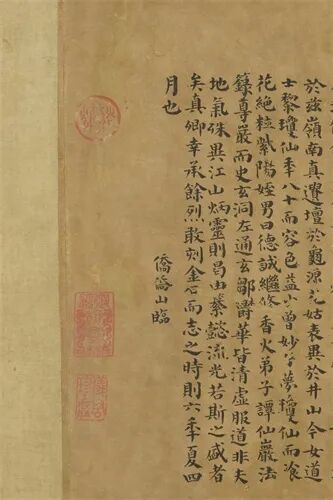 於兹嶺南真遺壇於龜源花姑表異於井山今女道
士黎瓊仙秊八十而容色益少曾妙行夢瓊仙而飡
花絶粒紫陽姪男曰德誠繼修香火弟子譚仙巖法
籙尊嚴而史玄洞左通玄鄒鬱華皆清虛服道非夫
地氣殊異江山炳靈則曷由纂懿流光若斯之盛者
矣真卿幸承餘烈敢刻金石而志之時則六秊夏四
月也
僑山臨